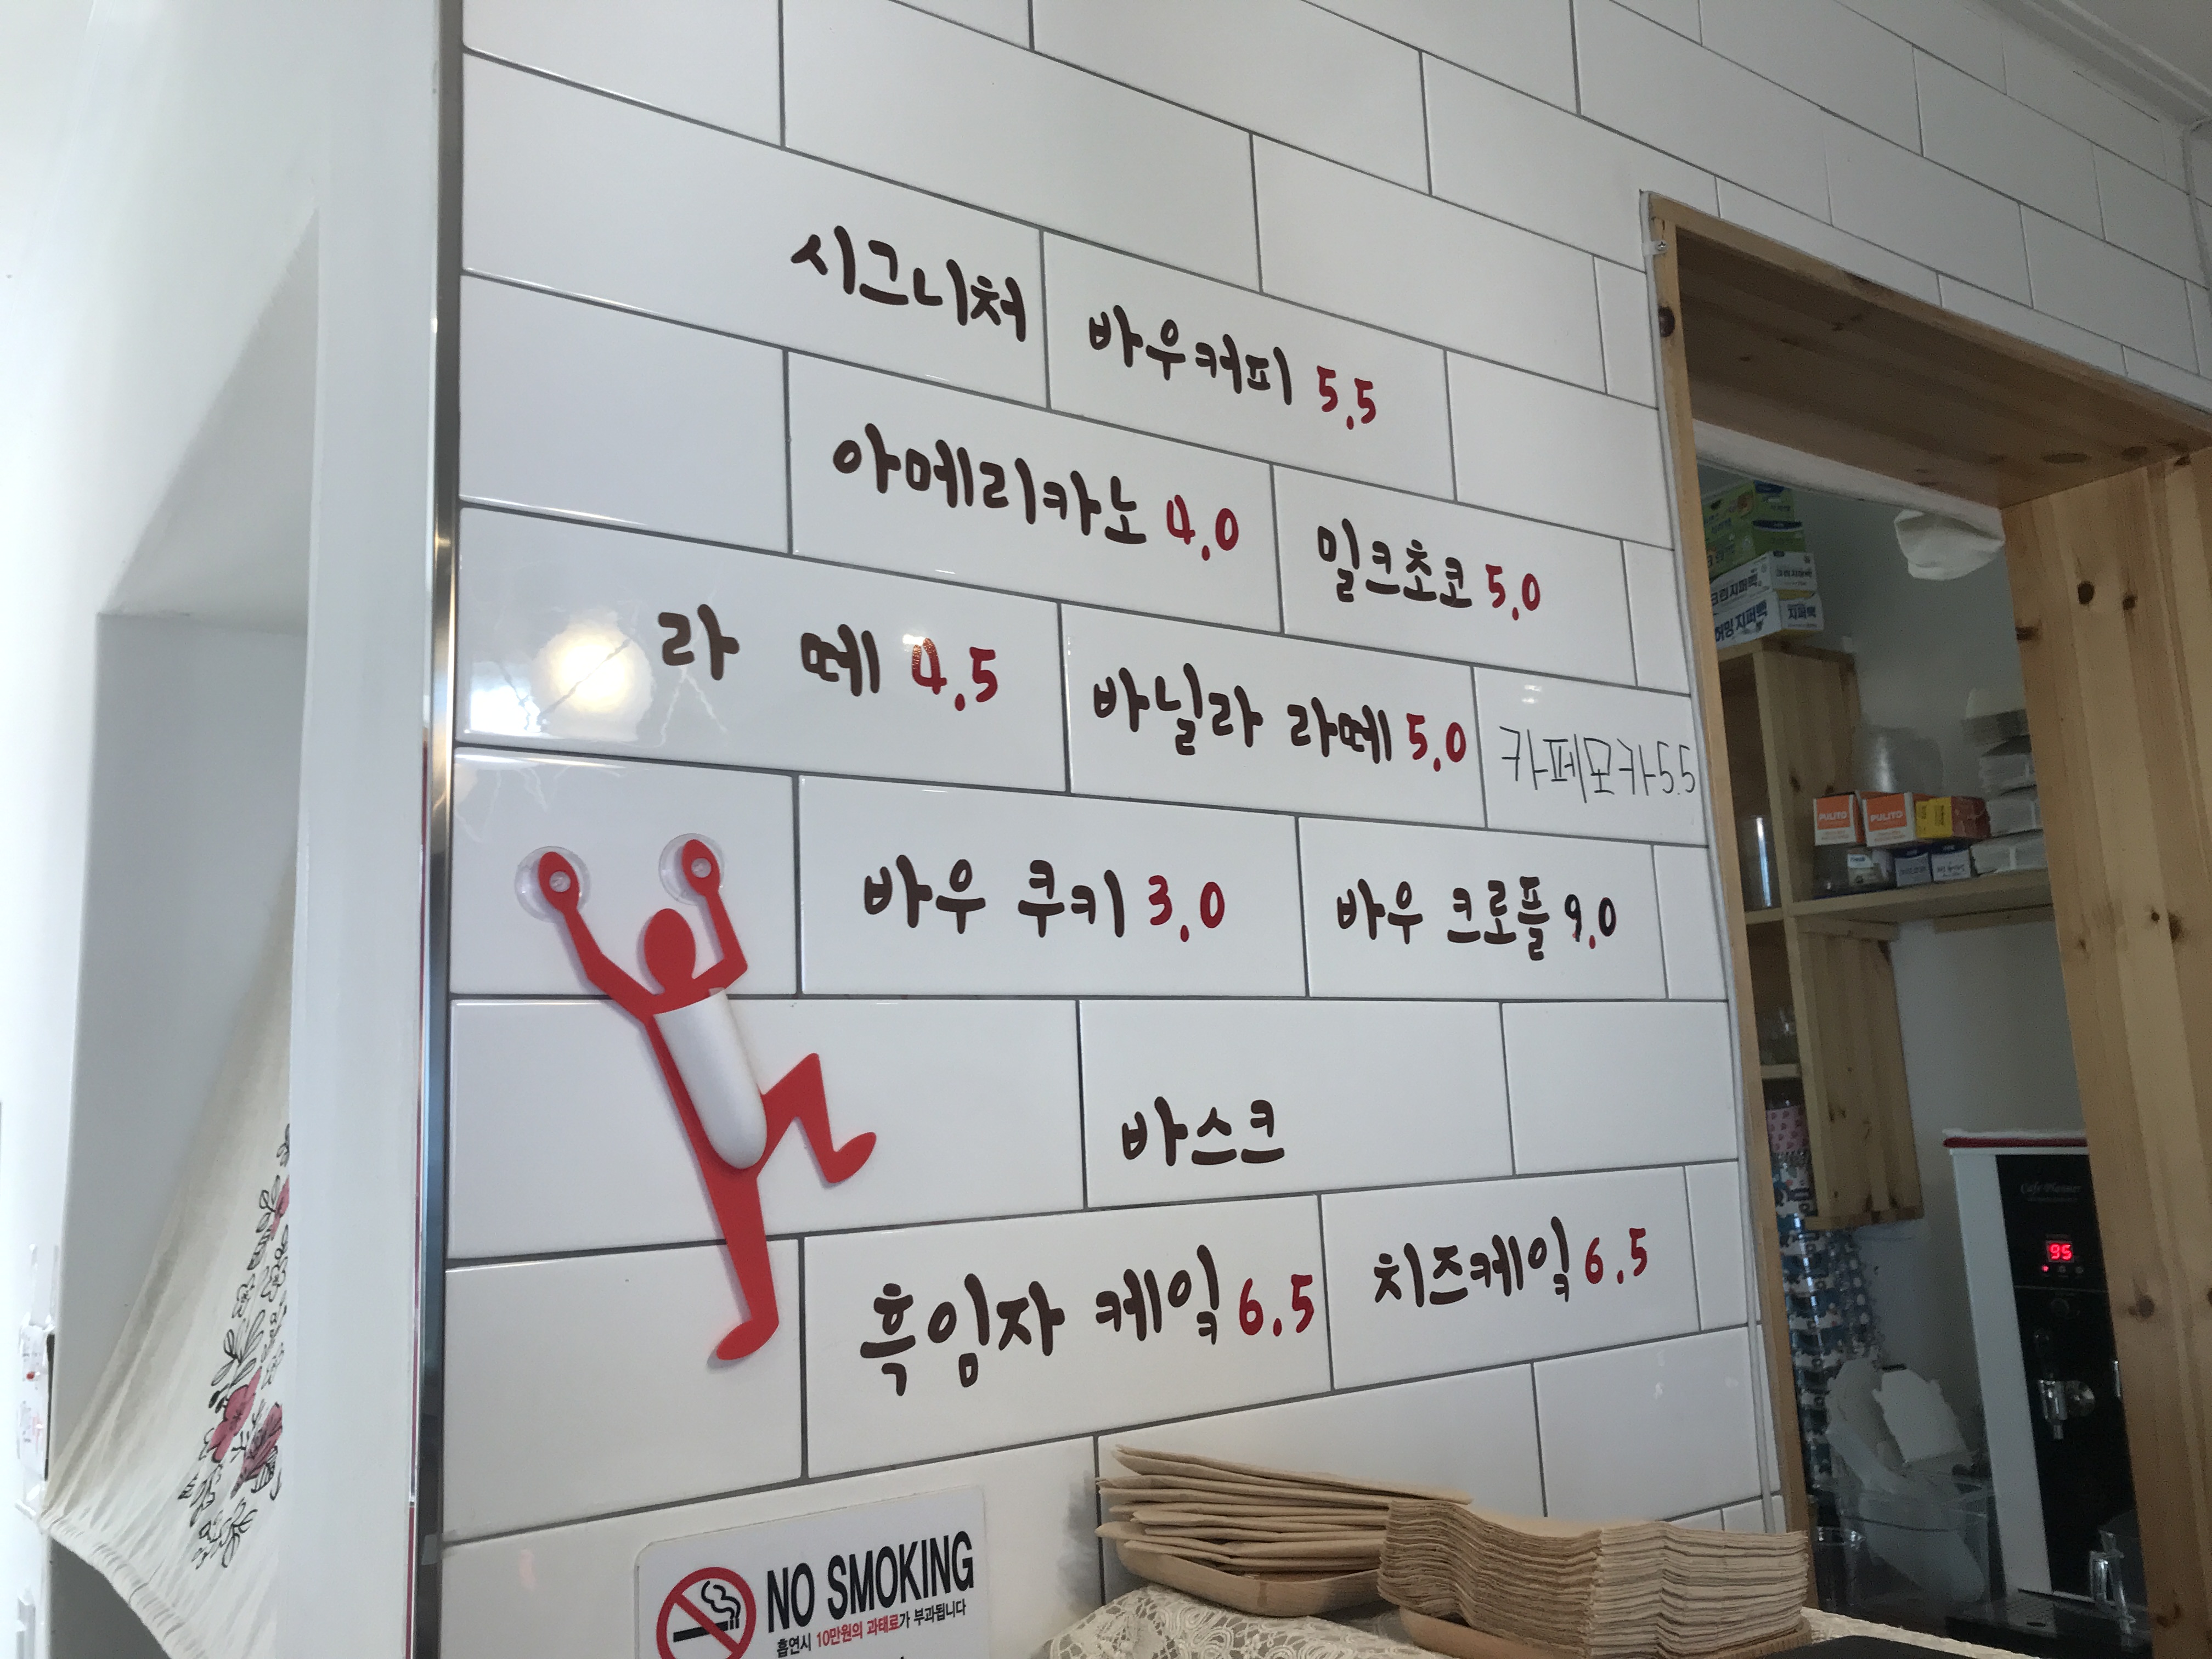 시그니처 바우커피 5.5
아메리카노 4.0 밀크초코 5.0
라 떼 4.5 바닐라 라떼 5.0 카페모카 5.5
바우 쿠키 3.0 바우 크로플 9.0
바스크
흑임자 케익 6.5 치즈케익 6.5
NO SMOKING
흡연시 10만원의 과태료가 부과됩니다
지퍼백
PULITO PULITO
Cafe Planner
95